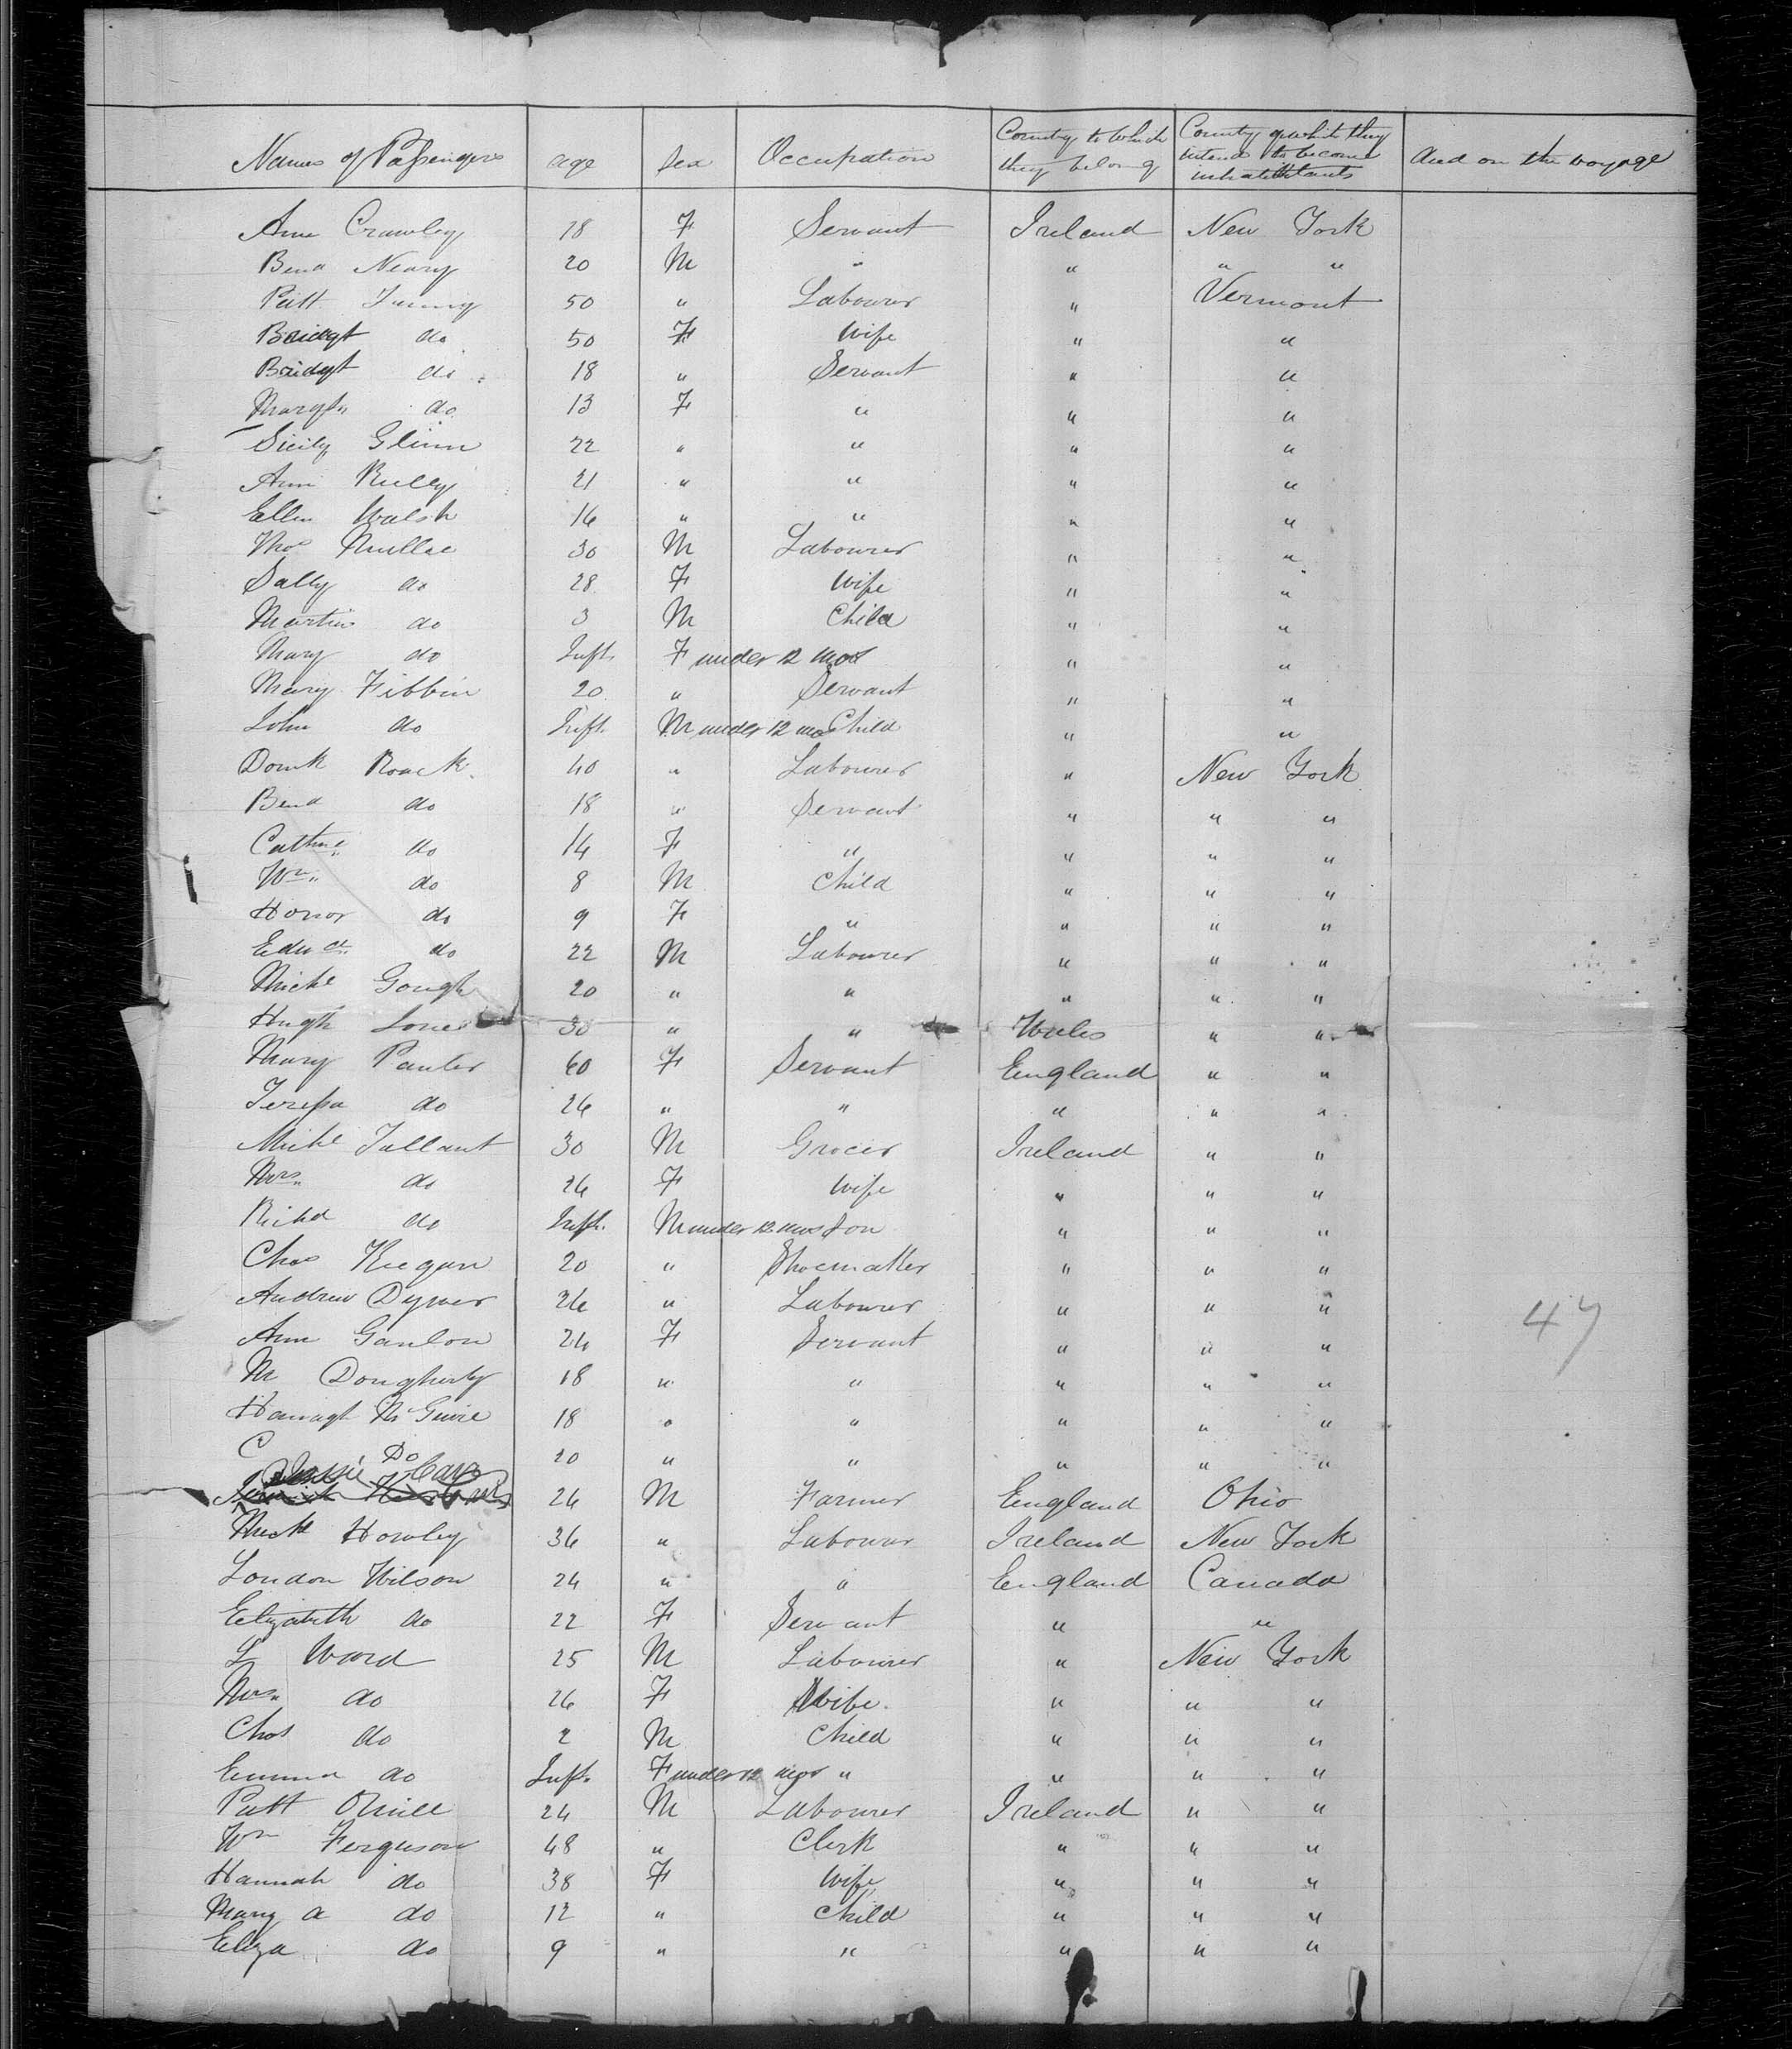 Names of Passengers age Sex Occupation County to which they belong County of which they intend to become inhabitants died on the voyage
Ann Crawley 18 F Servant Ireland New York
Bend Neary 20 M " " " "
Patt 50 " Labourer " Vermont
Bridgt do 50 F Wife " "
Bridgt do 18 " Servant " "
Margt do 13 F " " "
Sicily Glinn 22 " " " "
Ann 21 " " " "
Ellen Walsh 16 " " " "
Thos 30 M Labourer " "
Sally do 28 F Wife " "
Martin do 3 M Child " "
Mary do Inft. F under 12 mos " "
Mary Fibbin 20 " Servant " "
John do Inft. M under 12 mos Child " "
Domk Roack 40 " Labourer " New York
Bend do 18 " Servant " " "
Cathne do 14 F " " " "
Wm do 8 M Child " " "
Honor do 9 F " " " "
Edwd do 22 M Labourer " " "
Michl Gough 20 " " " " "
Hugh Jones 30 " " Wales " "
Mary Panter 60 F Servant England " "
Teressa do 26 " " " " "
Michl Tallant 30 M Grocer Ireland " "
Mrs do 26 F Wife " " "
Richd do Inft. M under 12 mos Son " " "
Chas Keegan 20 " Shoemaker " " "
Andrew Dywer 26 " Labourer " " "
Ann Ganlon 24 F Servant " " "
M Dougherty 18 " " " " "
Hanagh McGuire 18 " " " " "
C Do 20 " " " " "
26 M Farmer England Ohio
Michl Howley 36 " Labourer Ireland New York
London Wilson 24 " " England Canada
Elizabeth do 22 F Servant " "
L Ward 25 M Labourer " New York
Mrs do 26 F Wife. " " "
Chas do 2 M Child " " "
Emma do Inft. F under 12 mos " " " "
Patt ONeill 24 M Labourer Ireland " "
Wm Ferguson 48 " Clerk " " "
Hannah do 38 F Wife " " "
Mary a do 12 " Child " " "
Eliza do 9 " " " " "
47